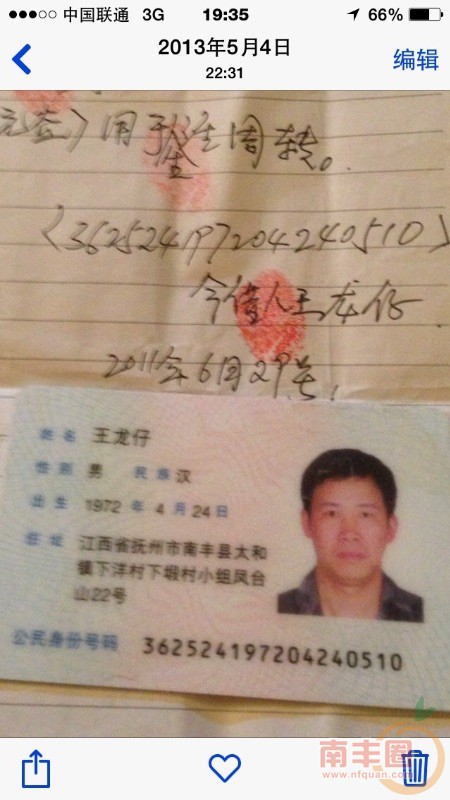 中国联通 3G 19:35 66%
2013年5月4日
22:31
编辑
用于 周转。
(362524197204240510)
今借人王龙仔
2011年6月29号
姓名 王龙仔
性别 男 民族 汉
出生 1972 年 4 月 24 日
住址 江西省抚州市南丰县太和
镇下洋村下塅村小组凤台
山22号
公民身份号码 362524197204240510
南丰圈
www.nfquan.com